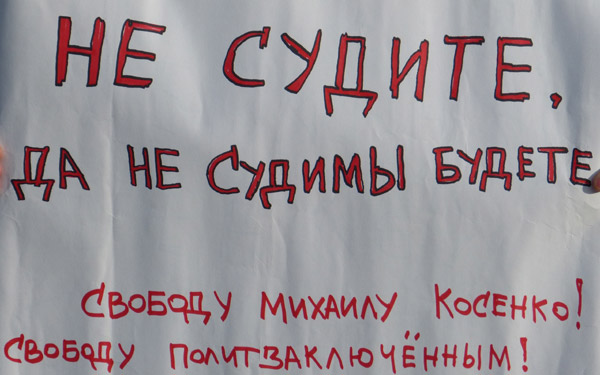 НЕ СУДИТЕ,
ДА НЕ СУДИМЫ БУДЕТЕ
СВОБОДУ МИХАИЛУ КОСЕНКО!
СВОБОДУ ПОЛИТЗАКЛЮЧЁННЫМ!